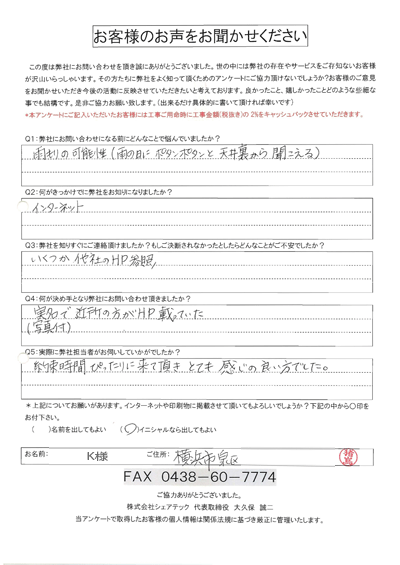 お客様のお声をお聞かせください
この度は弊社にお問い合わせを頂き誠にありがとうございました。世の中には弊社の存在やサービスをご存知ないお客様
が沢山いらっしゃいます。その方たちに弊社をよく知って頂くためのアンケートにご協力頂けないでしょうか?お客様のご意見
をお聞かせいただき今後の活動に反映させていただきたいと考えております。良かったこと、嬉しかったことどのような些細な
事でも結構です。是非ご協力お願い致します。(出来るだけ具体的に書いて頂ければ幸いです)
*本アンケートにご記入いただいたお客様には工事ご用命時に工事金額(税抜き)の2%をキャッシュバックさせていただきます。
Q1:弊社にお問い合わせになる前にどんなことで悩んでいましたか?
雨利の可能性(雨の日に ポタンポタンと 天井裏から 聞こえる)
Q2:何がきっかけでに弊社をお知りになりましたか?
インターネット
Q3:弊社を知りすぐにご連絡頂けましたか?もしご決断されなかったとしたらどんなことがご不安でしたか?
いくつか 他社のHP参照
Q4:何が決め手となり弊社にお問い合わせ頂きましたか?
実名で 近所の方がHP 載っていた
(写真付)
Q5:実際に弊社担当者がお伺いしていかがでしたか?
約束時間 ぴったりに 来て頂き とても 感じの良い方でした。
*上記についてお願いがあります。インターネットや印刷物に掲載させて頂いてもよろしいでしょうか?下記の中から○印を
お付下さい。
( )名前を出してもよい (○)イニシャルなら出してもよい
お名前: K様 ご住所: 横浜市泉区
FAX 0438-60-7774
ご協力ありがとうございました。
株式会社シェアテック 代表取締役 大久保 誠二
当アンケートで取得したお客様の個人情報は関係法規に基づき厳正に管理いたします。